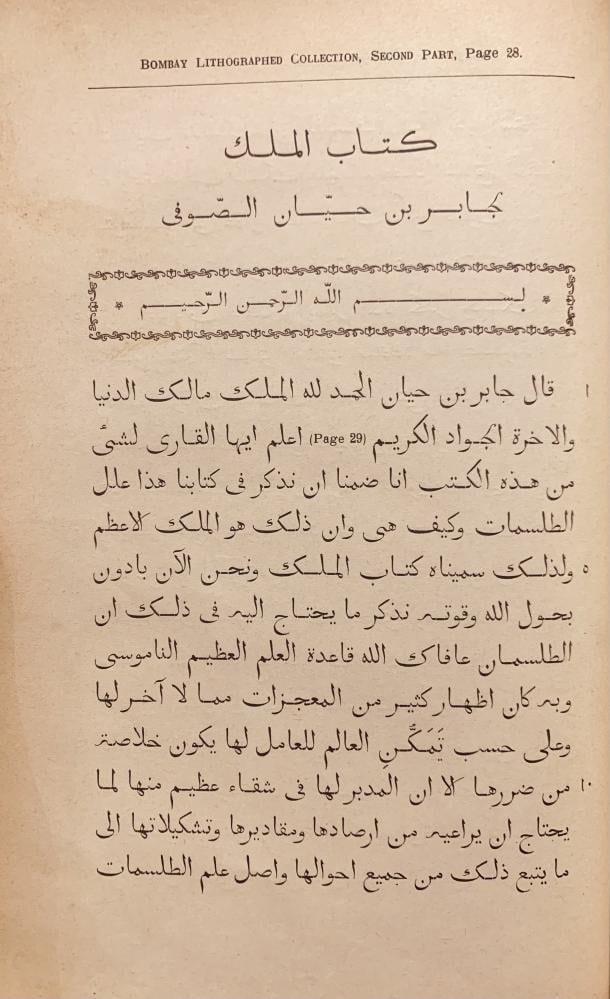 BOMBAY LITHOGRAPHED COLLECTION, SECOND PART, Page 28.
كتاب الملك
لجابر بن حيّان الصّوفى
* بسم اللّه الرّحمن الرّحيم *
١ قال جابر بن حيان الحمد لله الملك مالك الدنيا
والاخرة الجواد الكريم (Page 29) اعلم ايها القارى لشئ
من هذه الكتب انا ضمنا ان نذكر فى كتابنا هذا علل
الطلسمات وكيف هى وان ذلك هو الملك الاعظم
٥ ولذلك سميناه كتاب الملك ونحن الآن بادون
بحول الله وقوته نذكر ما يحتاج اليه فى ذلك ان
الطلسمان عافاك الله قاعدة العلم العظيم الناموسى
وبه كان اظهار كثير من المعجزات مما لا آخر لها
وعلى حسب تَمَكُّنِ العالم للعامل لها يكون خلاصته
١٠ من ضررها الا ان المدبر لها فى شقاء عظيم منها لما
يحتاج ان يراعيه من ارصادها ومقاديرها وتشكيلاتها الى
ما يتبع ذلك من جميع احوالها واصل علم الطلسمات